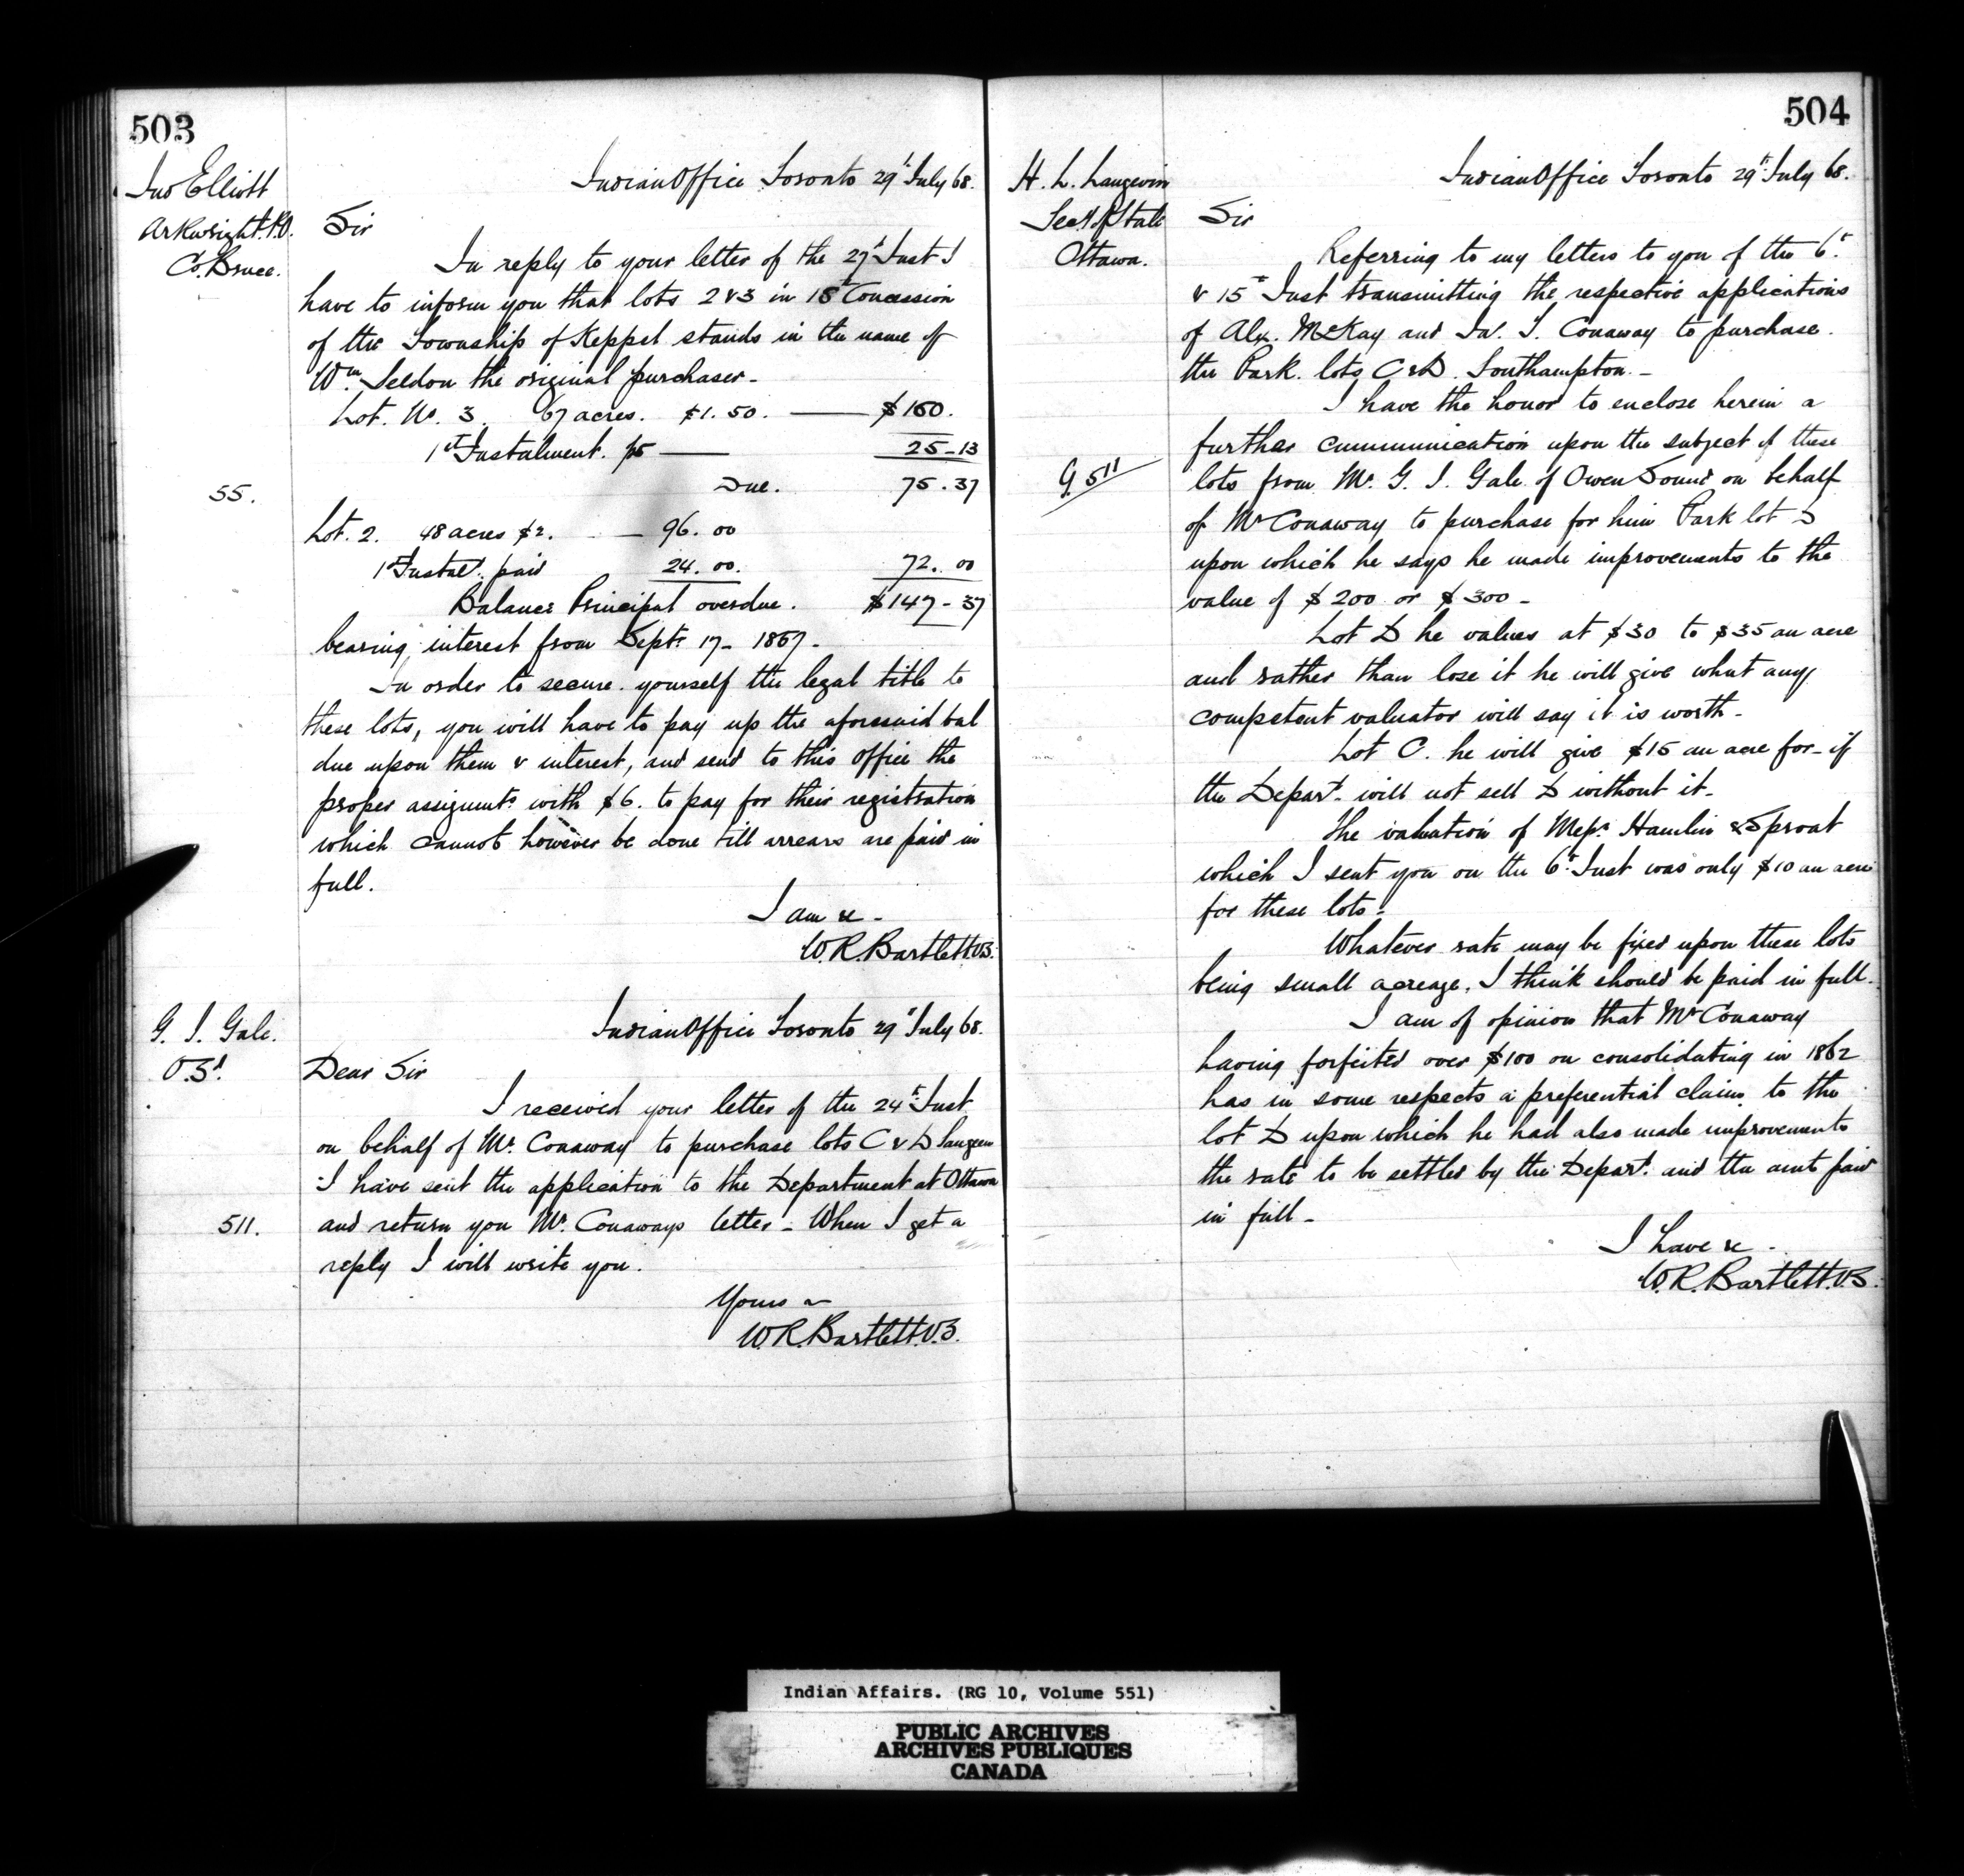 503
Jno Elliott
Arkwright. P.O.
Co. Bruce.
Indian Office Toronto 29th July 68.
Sir
In reply to your letter of the 27th Inst I
have to inform you that lots 2 & 3 in 18th Concession
of the Township of Keppel stands in the name of
Wm. Seldon the original purchaser -
Lot. No. 3. 67 acres. $1.50. — $100.
1st Instalment. pd — 25-13
Due. 75.37
55.
Lot. 2. 48 acres $2. — 96.00
1st Instal. paid 24.00. 72.00
Balance Principal overdue. $147-37
bearing interest from Sept. 17 - 1857 -
In order to secure yourself the legal title to
these lots, you will have to pay up the aforesaid bal
due upon them & interest, and send to this Office the
proper assignmts with $6. to pay for their registration
which cannot however be done till arrears are paid in
full.
I am &c -
W.R. Bartlett. V.S.
G. J. Gale.
O. Sd.
Indian Office Toronto 29th July 68.
Dear Sir
I received your letter of the 24th Inst
on behalf of Mr. Conaway to purchase lots C & D Saugeen
I have sent the application to the Department at Ottawa
511.
and return you Mr. Conaways letter - When I get a
reply I will write you.
Yours &
W.R. Bartlett. V.S.
504
H. L. Langevin
Secy of State
Ottawa.
Indian Office Toronto 29th July 68.
Sir
Referring to my letters to you of the 6th
& 15th Inst transmitting the respective applications
of Alex. McKay and Jno. T. Conaway to purchase
the Park lots C & D. Southampton. -
I have the honor to enclose herein a
further cummunication upon the subject of these
G 511
lots from Mr. G. J. Gale of Owen Sound on behalf
of Mr Conaway to purchase for him Park lot D
upon which he says he made improvements to the
value of $200 or $300 -
Lot D he values at $30 to $35 an acre
and rather than lose it he will give what any
competent valuator will say it is worth -
Lot C. he will give $15 an acre for - if
the Depart. will not sell D without it -
The valuation of Messrs Hamlin & Sproat
which I sent you on the 6th Inst was only $10 an acre
for these lots -
Whatever rate may be fixed upon these lots
being small acreage, I think should be paid in full.
I am of opinion that Mr Conaway
having forfeited over $100 on consolidating in 1862
has in some respects a preferential claim to the
lot D upon which he had also made improvements
the rate to be settled by the Depart. and the amt paid
in full -
I have &c -
W.R. Bartlett. V.S.
Indian Affairs. (RG 10, Volume 551)
PUBLIC ARCHIVES
ARCHIVES PUBLIQUES
CANADA